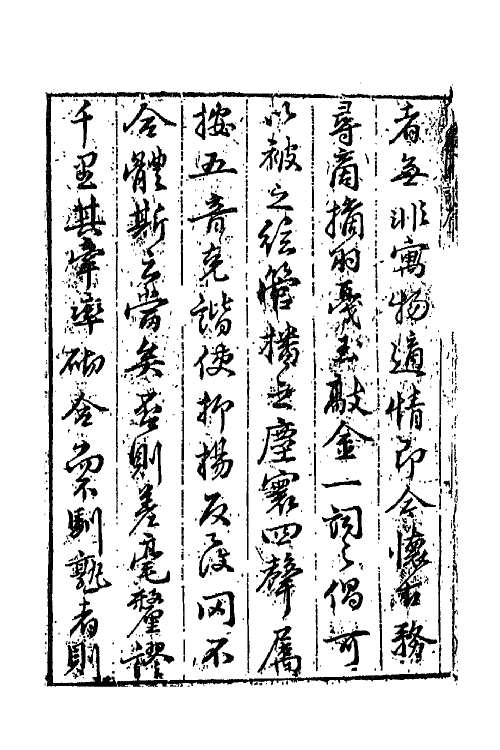 者無非寓物適情即今懷古務
尋商摘羽戛玉敲金一詞之倡可
以被之絃管播之塵寰四聲屬
按五音克諧使抑揚反復罔不
合體斯之當矣否則差毫釐謬
千里其牽率砌合而不馴熟者則